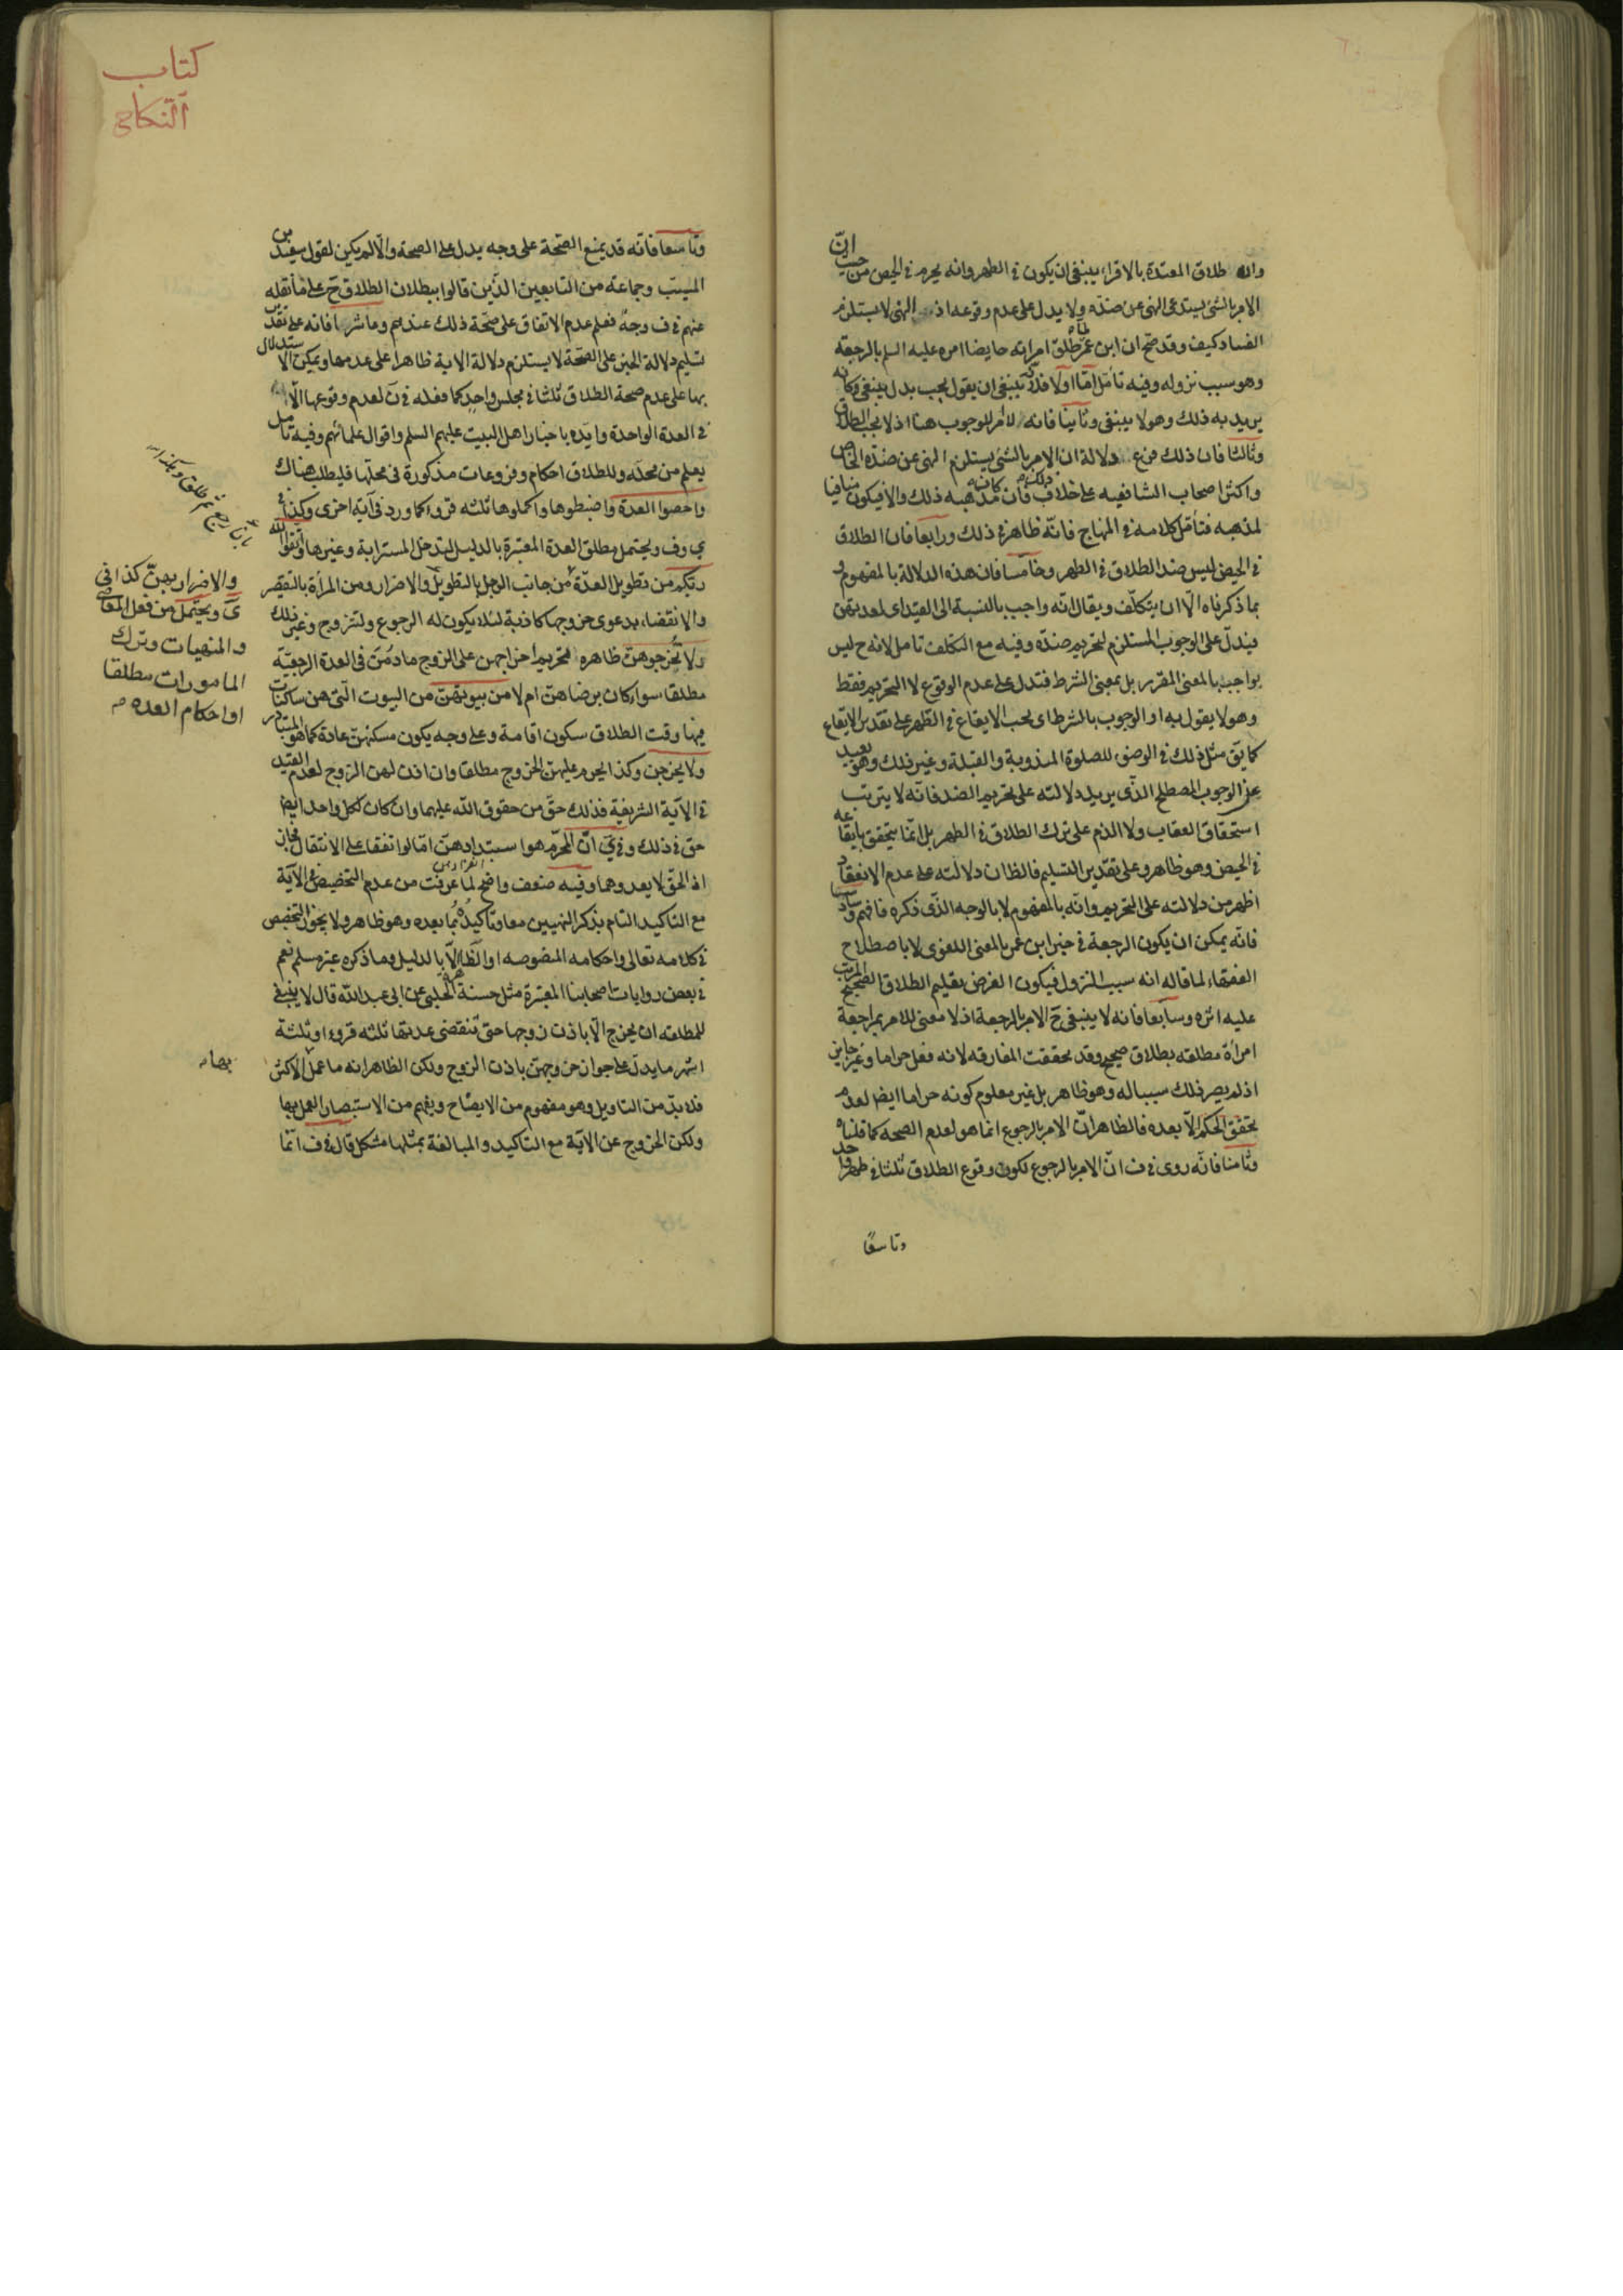 وانه طلاق المعتدة بالاقراء ينبغى ان يكون فى الطهر وانه يحرم فى الحيض من حيث انّ
الامر بالشئ يستدعى النهى عن ضدّه ولا يدل على عدم وقوعه اذ النهى لا يستلزم
الفساد كيف وقد صح ان ابن عمر لمّا طلق امراته حايضا امره عليه السلم بالرجعة
وهو سبب نزوله وفيه تأمل امّا اولا فلانّه ينبغى ان يقول يجب بدل ينبغى وكانه
يريد به ذلك وهو لا ينبغى وثانيا فانه لا امر للوجوب هنا اذ لا يجب الطلاق
وثالثا فان ذلك فرع دلالة ان الامر بالشئ يستلزم النهى عن ضدّه الخاص
واكثر اصحاب الشافعيه على خلاف ذلك فان كانه مذهبه ذلك والا فيكون منافيا
لمذهبه فتأمّل كلامه فى المنهاج فانّه ظاهر فى ذلك ورابعا فان الطلاق
فى الحيض ليس ضد الطلاق فى الطهر وخامسا فان هذه الدلالة بالمفهوم
بما ذكرناه الّا ان يتكلّف ويقال انّه واجب بالنسبة الى القيد اى لعدتهنّ
فيدلّ على الوجوب المستلزم لتحريم ضدّه وفيه مع التكلف تامل لانه ح ليس
بواجب بالمعنى المقرر بل بمعنى الشرط فتدل على عدم الوقوع لا التحريم فقط
وهو لا يقول به او الوجوب بالشرط اى يجب الايقاع فى الطهر على تقدير الايقاع
كما يق مثل ذلك فى الوضوء للصلوة المندوبة والقبلة وغير ذلك وهو بعيد
عن الوجوب المصطلح الذّى يريد دلالته على تحريم الضد فانّه لا يترتب
استحقاق العقاب ولا الذم على ترك الطلاق فى الطهر بل انّما يتحقق بايقاعه
فى الحيض وهو ظاهر وعلى تقدير التسليم فالظان دلالته على عدم الانعقاد
اظهر من دلالته على التحريم وانّه بالمفهوم لا بالوجه الذّى ذكره فافهم وسادسا
فانّه يمكن ان يكون الرجعة فى خبر ابن عمر بالمعنى اللغوى لا باصطلاح
الفقهاء لما قاله انه سبب النزول فيكون الغرض تعليم الطلاق الصحيح المرتب
عليه اثره وسابعا فانه لا ينبغى ح الامر بالرجعة اذ لا معنى للامر بمراجعة
امراة مطلقه بطلاق صحيح وقد تحققت المفارقه لانه فعل حراما وغير جايز
اذ لم يصر ذلك سببا له وهو ظاهر بل غير معلوم كونه حراما ايضا لعدم
تحقق الحكم الّا بعده فالظاهر انّ الامر بالرجوع انما هو لعدم الصحه كما قلناه
وثامنا فانّه روى فى ف انّ الامر بالرجوع لكون وقوع الطلاق ثلثا فى طهر واحد
وتاسعًا
كتاب
النّكاح
وتاسعا فانّه قد يمنع الصّحة على وجه يدل على الصحة والّا لم يكن لقول سعيد بن
المسيّب وجماعة من التابعين الذّين قالوا ببطلان الطلاق ح على ما نقله
عنهم فى ف وجهٌ فعلم عدم الاتفاق على صحّة ذلك عندهم وعاشرا فانه على تقدير
تسليم دلالة الخبر على الصّحة لا يستلزم دلالة الاية ظاهرا على عدمها ويمكن الاستدلال
بها على عدم صحة الطلاق ثلثا فى مجلس واحد كما فعله فى ن لعدم وقوعها الّا
فى العدة الواحدة وايّده باخبار اهل البيت عليهم السلم واقوال علمائهم وفيه تامل
يعلم من محله وللطلاق احكام وفروعات مذكورة فى محلّها فليطلب هناك
واحصوا العدة واضبطوها واكملوها ثلثه قروء كما ورد فى آية اخرى وكذا فى
ى وف ويحتمل مطلق العدة المعتبرة بالدليل لتدخل المسترابة وغيرها واتقوا الله
ربّكم من تطويل العدّة من جانب الرجل بالتطويل والاضرار ومن المرأة بالتقصير
والانقضاء بدعوى خروجها كاذبة لئلا يكون له الرجوع ولتزوج وغير ذلك
ولا تخرجوهنّ ظاهره تحريم اخراجهن على الزوج ما دُمنَ فى العدة الرجعيّة
مطلقا سواء كان برضاهنّ ام لا من بيوتهنّ من البيوت الّتى هن ساكنات
فيها وقت الطلاق سكون اقامة وعلى وجه يكون مسكنهنّ عادة كما هو المتبادر
ولا يخرجن وكذا يحرم عليهنّ الخروج مطلقا وان اذن لهن الزوج لعدم القيد
فى الآية الشريفية فذلك حقّ من حقوق الله عليهما وان كان لكل واحد ايض
حق فى ذلك وفى ىَ انّ المحرّم هو استبدادهنّ امّا لو اتفقا على الانتقال فجاز
اذ الحقّ لا يعدوهما وفيه ضعف واضح لما عرفت من عدم التخصيص فى الآية
مع التاكيد التام بذكر النهيين معا وتاكيدُهُ بما بعده وهو ظاهر ولا يجوز التخصيص
فى كلامه تعالى واحكامه المنصوصه او الظاهرة الّا بالدليل وما ذكره غير مسلم نعم
فى بعض روايات اصحابنا المعتبرة مثل حسنة الحلبى عن ابى عبد الله قال لا ينبغى
للمطلقه ان يخرج الّا باذن زوجها حتى تنقضى عدتها ثلثه قروء او ثلثة
اشهر ما يدلّ على جواز خروجهنّ باذن الزوج ولكن الظاهر انه ما عمل الاكثر
فلا بدّ من التاويل وهو مفهوم من الايضاح ويفهم من الاستبصار العمل بها
ولكن الخروج عن الآية مع التاكيد والمبالغة بمثلها مشكل قال فى ف انّما
والاضرار بهنّ كذا فى
ىَ ويحتمل من فعل المعاصى
والمنهيات وترك
المامورات مطلقا
او احكام العده
بها